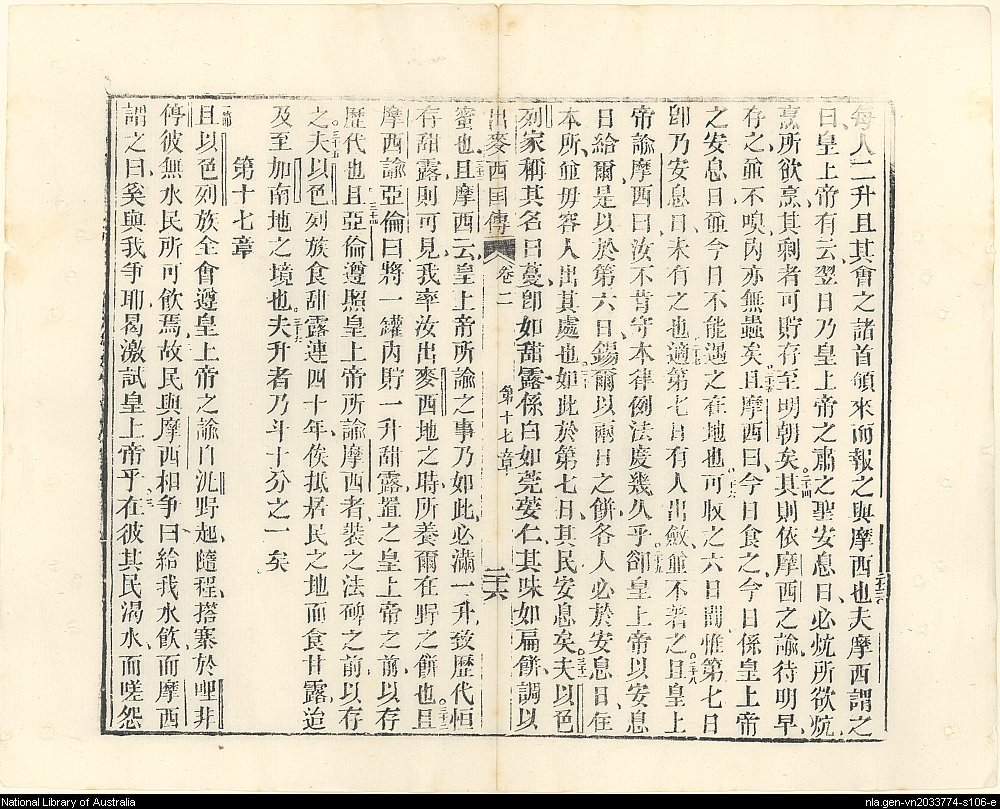 每人二升且其會之諸首領來而報之與摩西也夫摩西謂之
曰皇上帝有云翌日乃皇上帝之肅之聖安息日必炕所欲炕
烹所欲烹其剩者可貯存至明朝矣其則依摩西之諭待明早
存之並不嗅內亦無蟲矣且摩西曰今日食之今日係皇上帝
之安息日並今日不能遇之在地也可收之六日間惟第七日
卽乃安息日未有之也適第七日有人出斂並不著之且皇上
帝諭摩西曰汝不肯守本律例法度幾久乎卻皇上帝以安息
日給爾是以於第六日錫爾以兩日之餅各人必於安息日住
本所並毋容人出其處也如此於第七日其民安息矣夫以色
列家稱其名曰蔓卽如甜露係白如莞荽仁其味如扁餅調以
出麥西国傳 卷二 第十七章 二十六
蜜也且摩西云皇上帝所諭之事乃如此必滿一升致歷代恒
存甜露則可見我率汝出麥西地之時所養爾在野之餅也且
摩西諭亞倫曰將一罐內貯一升甜露置之皇上帝之前以存
歷代也且亞倫遵照皇上帝所諭摩西者裝之法碑之前以存
之夫以色列族食甜露連四十年俟抵居民之地而食甘露迨
及至加南地之境也夫升者乃斗十分之一矣
第十七章
且以色列族全會遵皇上帝之諭自汎野起隨程搭寨於哩非
停彼無水民所可飲焉故民與摩西相爭曰給我水飲而摩西
謂之曰奚與我爭耶曷激試皇上帝乎在彼其民渴水而嗟怨
National Library of Australia
nla.gen-vn2033774-s106-e